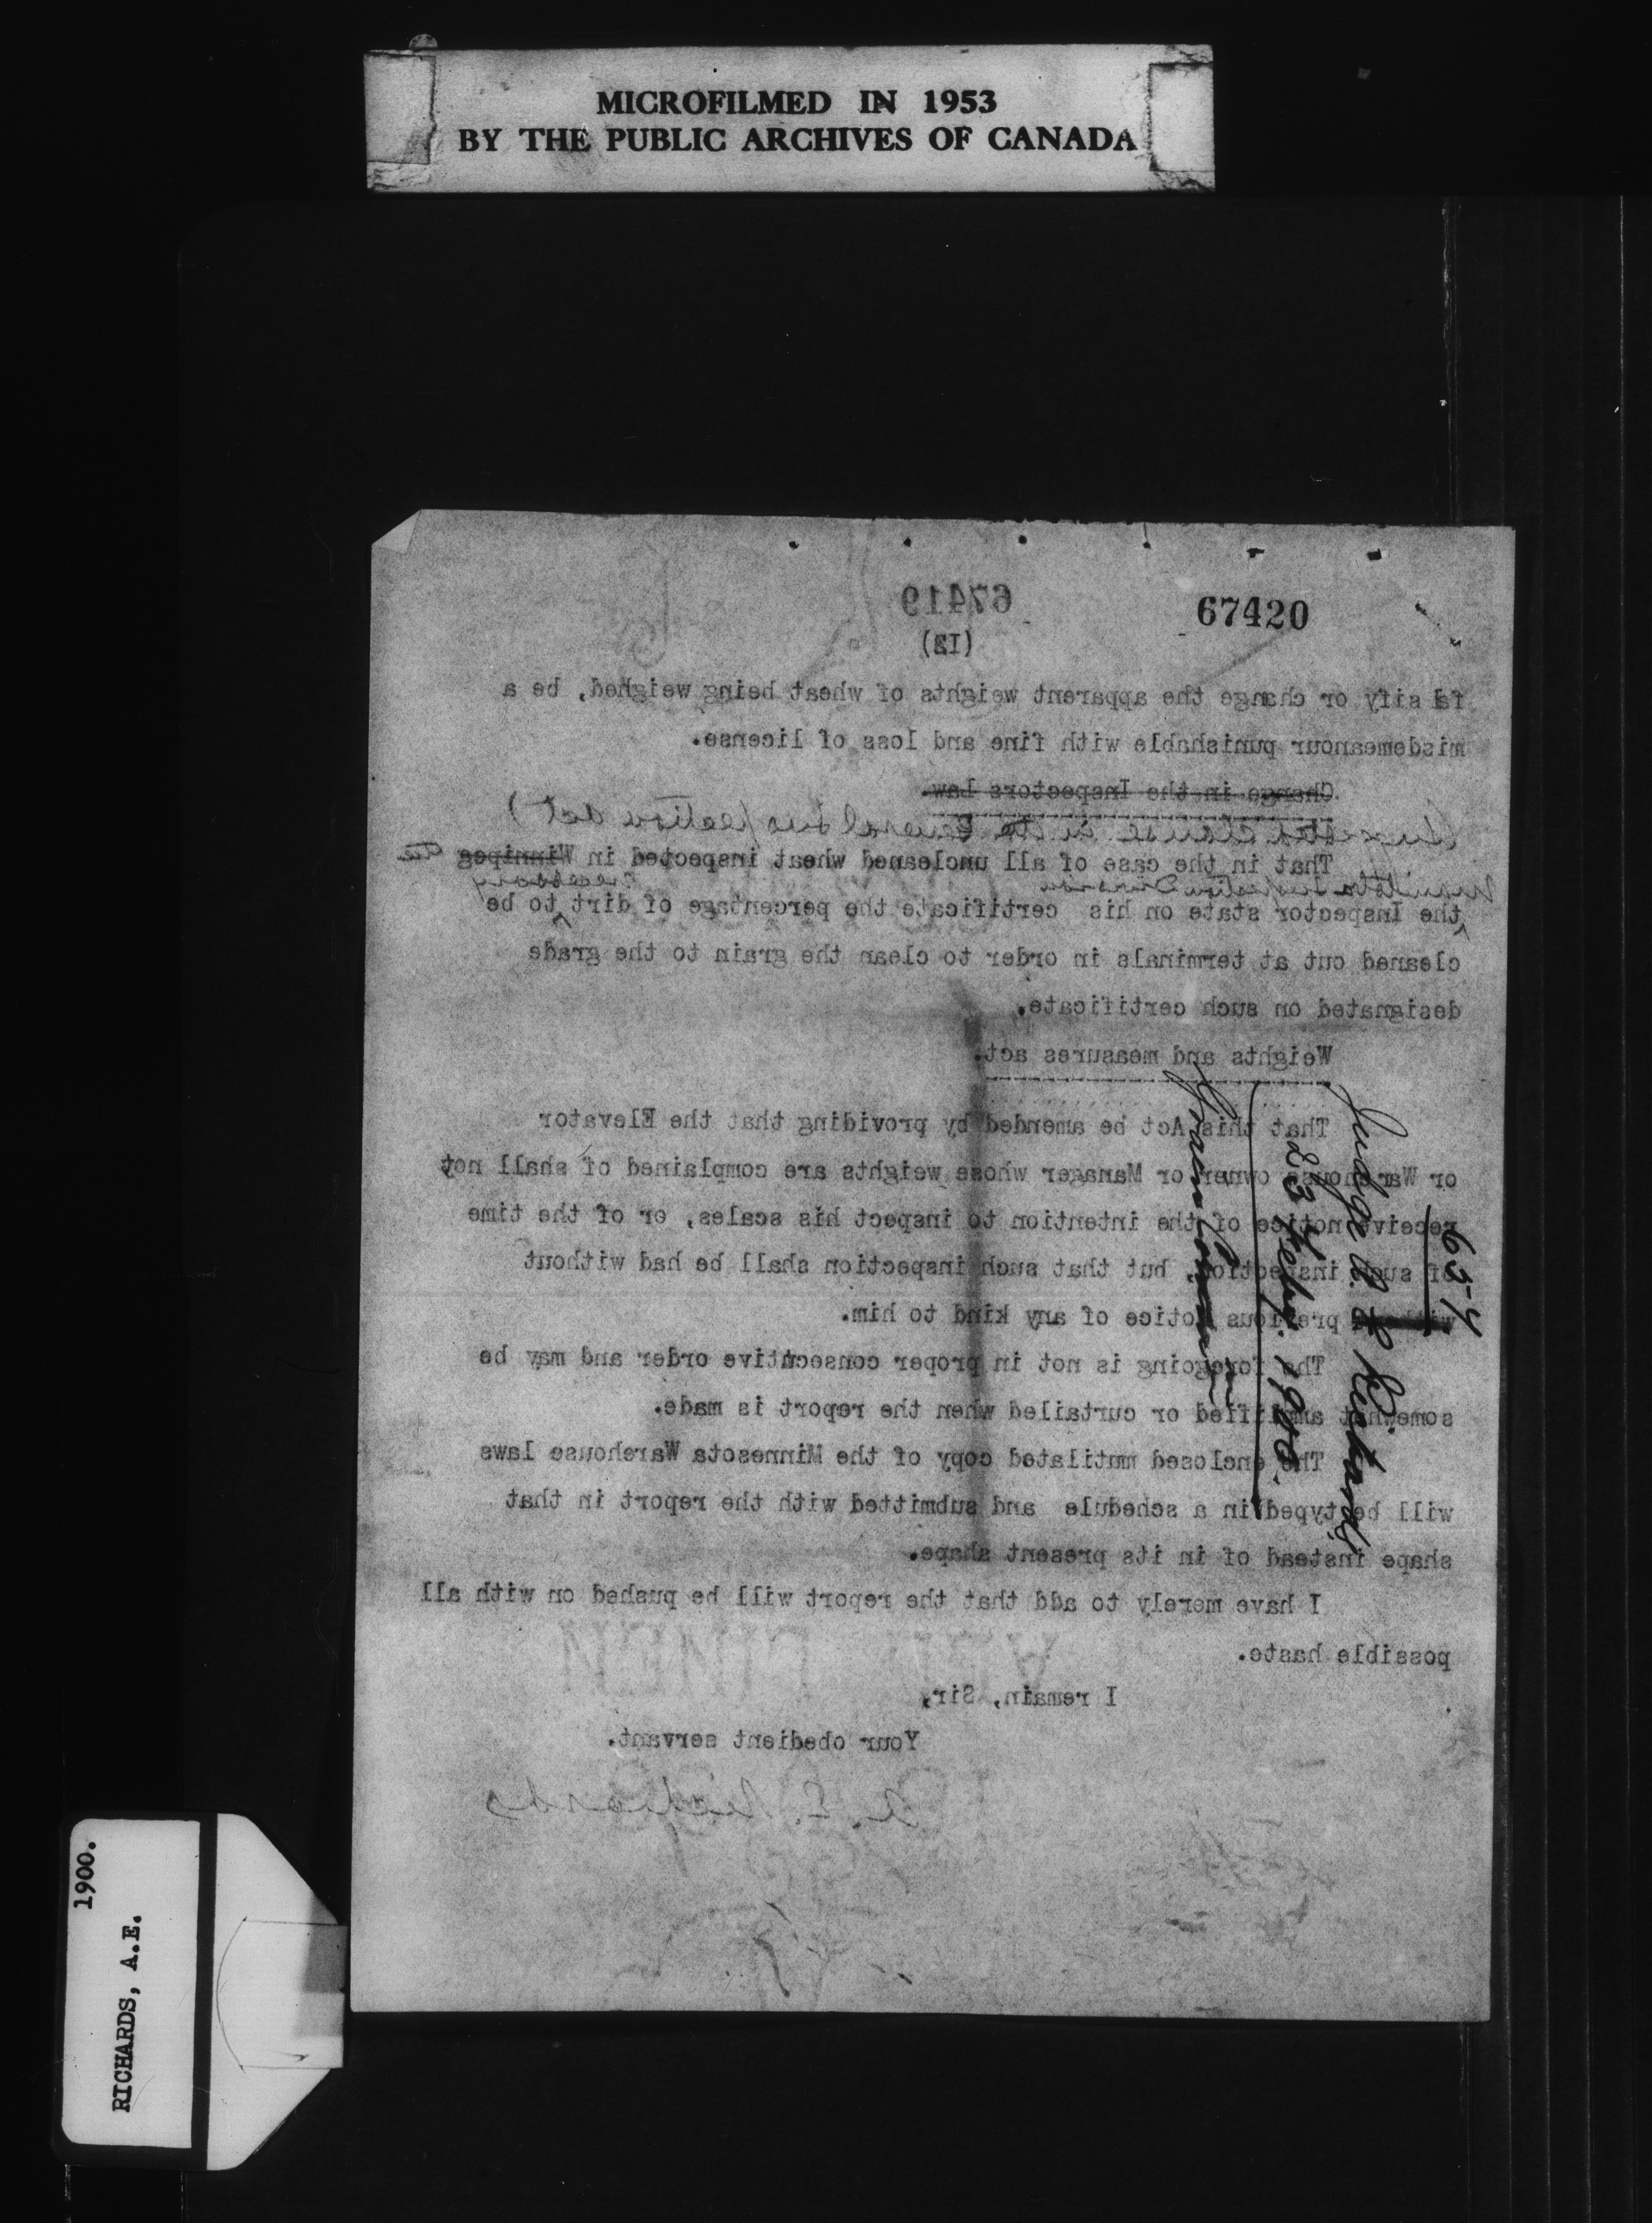 MICROFILMED IN 1953
BY THE PUBLIC ARCHIVES OF CANADA
67419
67420
(12)
falsify or change the apparent weights of wheat being weighed, be a
misdemeanour punishable with fine and loss of license.
Change in the Inspectors Law.
clause in the General Inspection Act)
That in the case of all uncleaned wheat inspected in Winnipeg the
Manitoba Inspection Division necessary
the Inspector state on his certificate the percentage of dirt to be
cleaned out at terminals in order to clean the grain to the grade
designated on such certificate.
Weights and measures act.
That this Act be amended by providing that the Elevator
or Warehouse owner or Manager whose weights are complained of shall not
receive notice of the intention to inspect his scales, or of the time
of such inspection, but that such inspection shall be had without
previous notice of any kind to him.
The foregoing is not in proper consecutive order and may be
somewhat amplified or curtailed when the report is made.
The enclosed mutilated copy of the Minnesota Warehouse laws
will be typed in a schedule and submitted with the report in that
shape instead of in its present shape.
I have merely to add that the report will be pushed on with all
possible haste.
I remain, Sir,
Your obedient servant.
A. E. Richards
654
Judge A. E. Richards
23 Feby. 1900.
Grain Comn
1900.
RICHARDS, A.E.